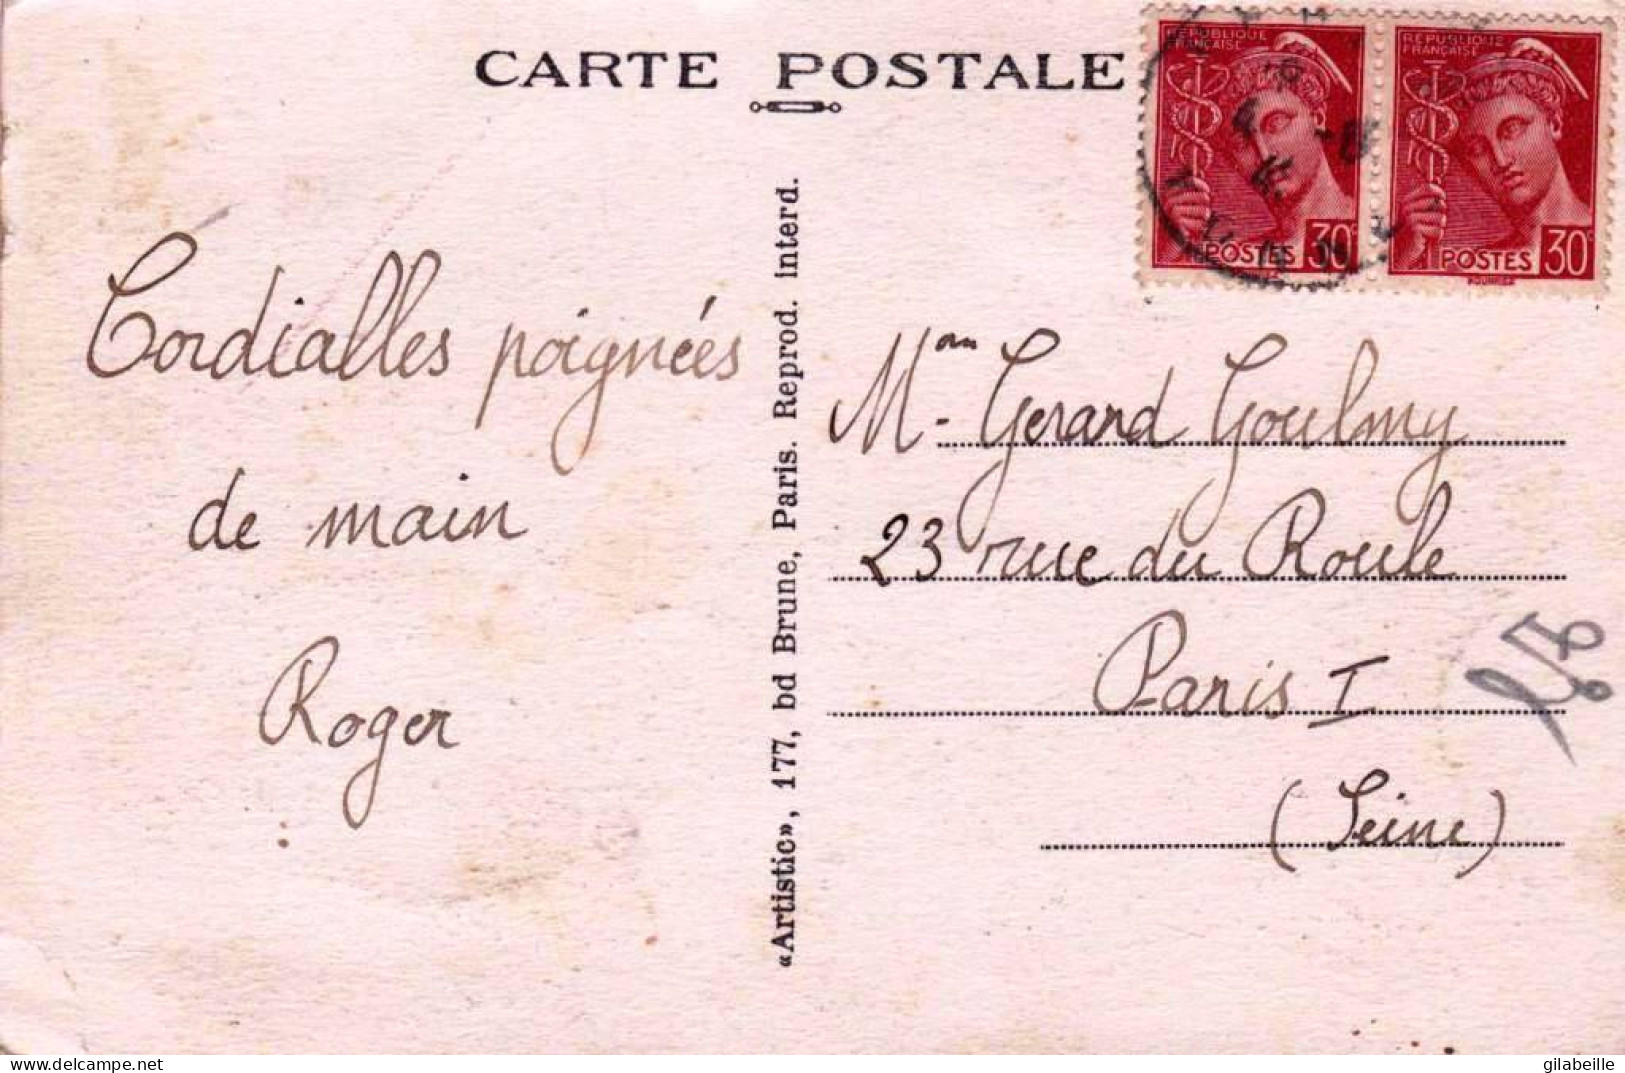 CARTE POSTALE
REPUBLIQUE FRANÇAISE
POSTES 30c
REPUBLIQUE FRANÇAISE
POSTES 30c
Cordialles poignées
de main
Roger
«Artistic», 177, bd Brune, Paris. Reprod. Interd.
Gerard Goulmy
23 rue du Roule
Paris I
(Seine)
gilabeille
delcampe.net